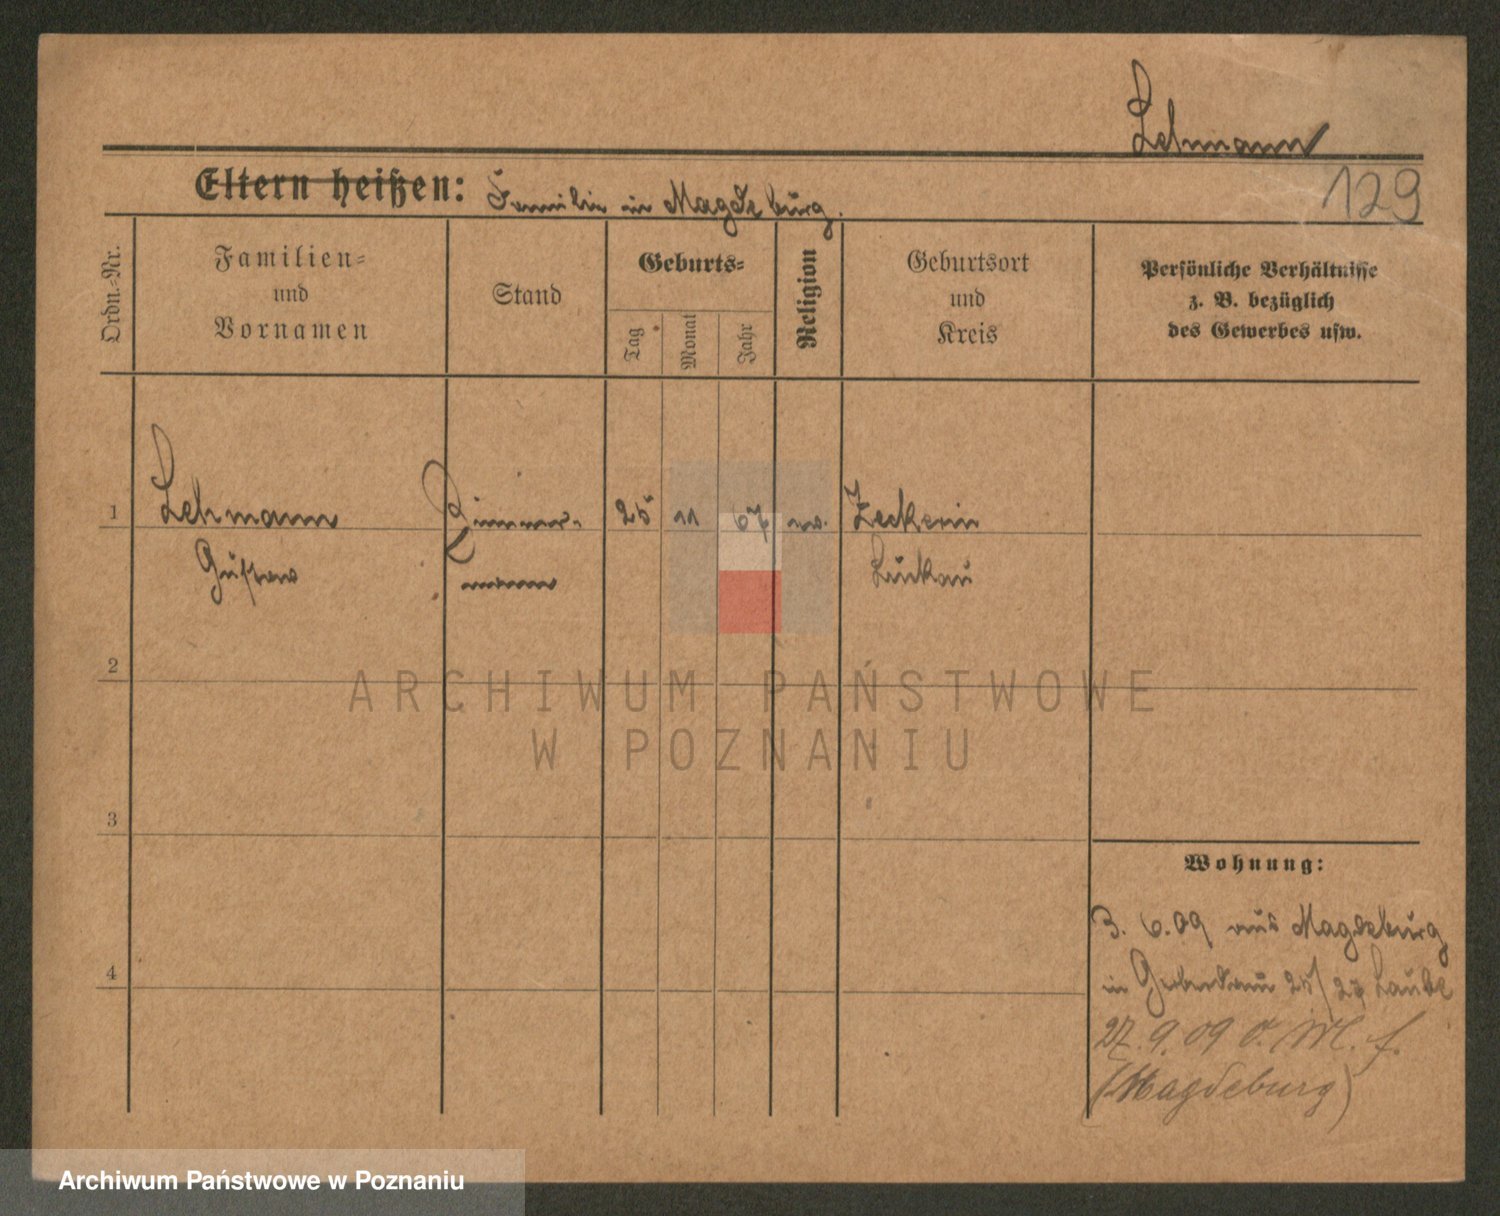 Lehmann
129
Eltern heißen: Familie in Magdeburg.
Ordn.-Nr.
Familien-
und
Vornamen
Stand
Geburts-
Tag
Monat
Jahr
Religion
Geburtsort
und
Kreis
Persönliche Verhältnisse
z. B. bezüglich
des Gewerbes usw.
1 Lehmann Zimmer- 25 11 67 ev. Zeckerin
Gustav mann Luckau
2
3
4
Wohnung:
3. 6. 09 aus Magdeburg
in 25/27 Laube
27. 9. 09 o. M. f.
(Magdeburg)
ARCHIWUM PAŃSTWOWE
W POZNANIU
Archiwum Państwowe w Poznaniu